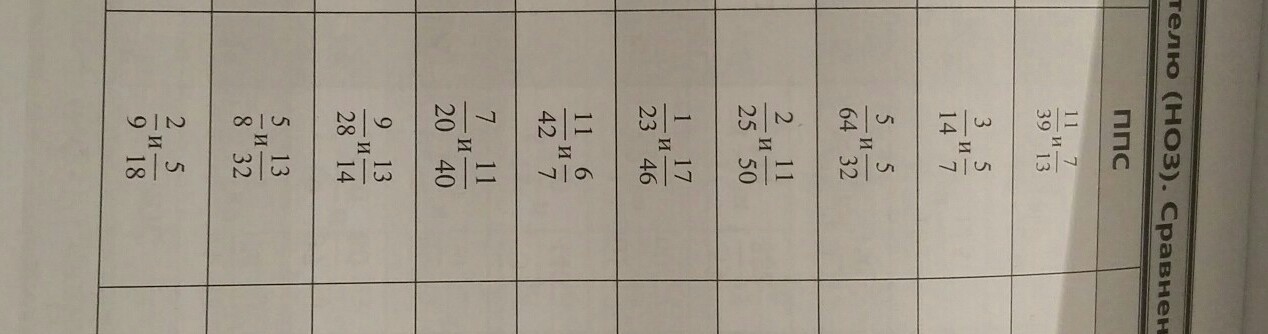 телю (НОЗ). Сравнен
ППС
11/39 и 7/13
3/14 и 5/7
5/64 и 5/32
2/25 и 11/50
1/23 и 17/46
11/42 и 6/7
7/20 и 11/40
9/28 и 13/14
5/8 и 13/32
2/9 и 5/18